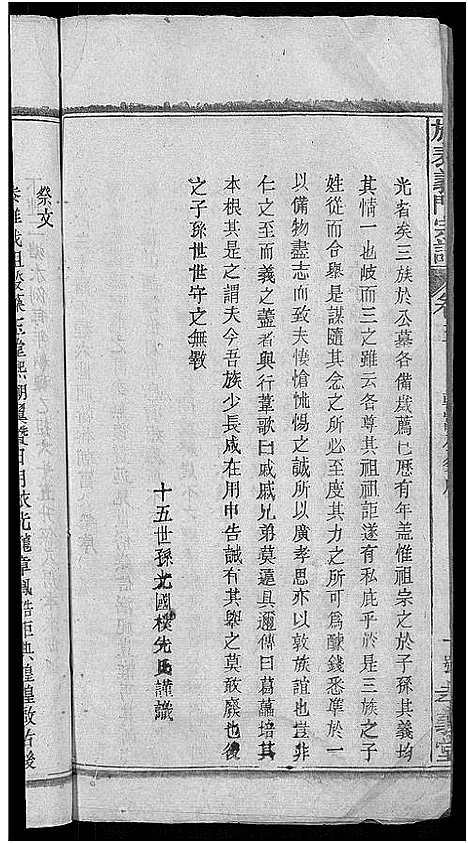 義門宗譜
孝義堂
光者矣三族於公墓各備歲薦已歷有年蓋惟祖宗之於子孫其義均
其情一惟也歧而三之雖云各尊其祖祖詎遂有私庇乎於是三族之子
姓從而合舉是謀隨其念之所必至度其力之所可爲醵錢悉準於一
以備物盡志而致夫悽愴怵惕之誠所以廣孝思亦以敦族誼也豈非
仁之至而義之盡者與行葦歌曰戚戚兄弟莫遠具邇傳曰葛藟培其
本根其是之謂夫今吾族少長咸在用申告誡有其舉之莫敢廢也後
之子孫世世守之無斁
十五世孫
國楨
謹識
祭文